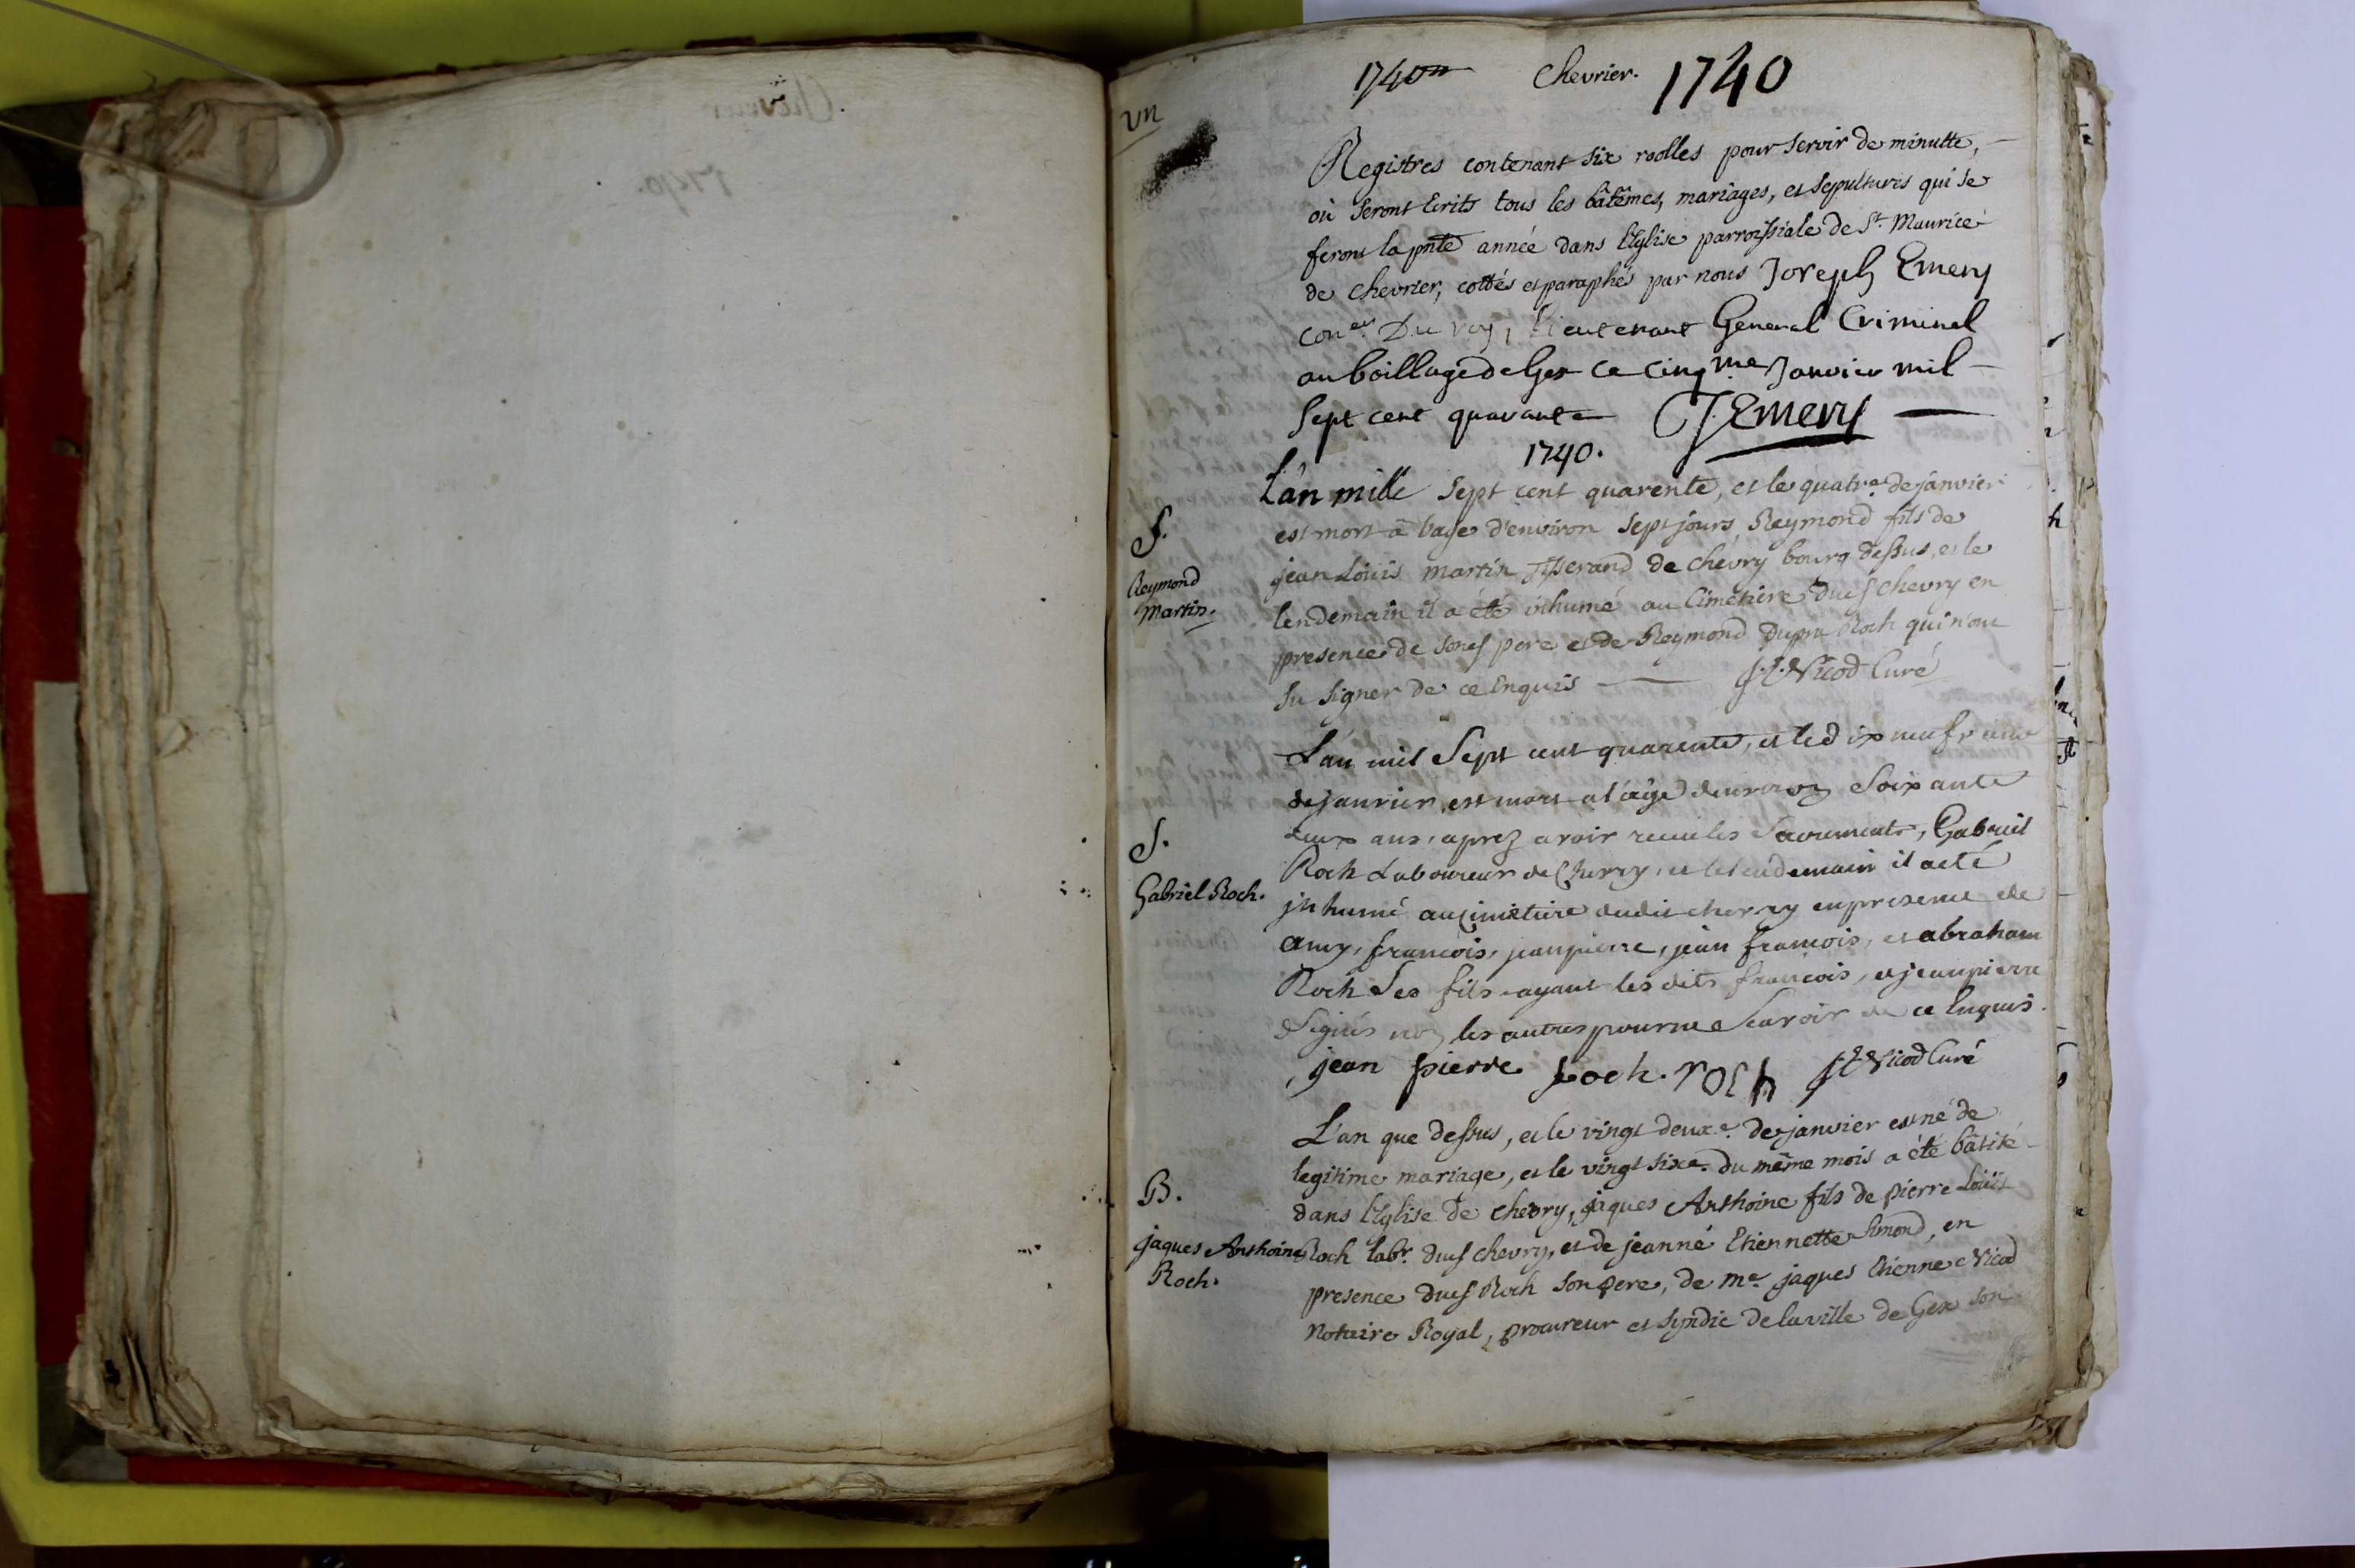 1740 Chevrier. 1740
un
Registres contenant six roolles pour servir de minutte,
où seront Ecrits tous les bâtêmes, mariages, et sepultures qui se
feront la pnte année dans l'Eglise parroissiale de St. Maurice
de chevrier, cottés et paraphés par nous Joseph Emery
coner. Du roy, Lieutenant General Criminel
au baillage de Gex ce cinqme. Janvier mil
Sept cent quarante J. Emery
1740.
L'an mille Sept cent quarente, et le quatre. de janvier
est mort à l'age d'environ sept jours, Reymond fils de
jean Loüis Martin Tisserand de chévry bourg dessus, et le
lendemain il a été inhumé au Cimetiere dud chevry en
presence de sond pere et de Reymond Roch qui n'ont
su signer de ce Enquis J. E. Nicod Curé
S.
Reymond
Martin.
L'an mil Sept cent quarente, et le dix neuf
de janvier, est mort a l'âge d'environ Soixante
deux ans, aprez avoir reçu les Sacrements, Gabriel
Roch Laboureur de Chevry, et le lendemain il a eté
jnhumé au Cimetiere dudit chevry en presence de
amy, francois, jean pierre, jean francois, et abraham
Roch Ses fils, ayant les dits francois, et jean pierre
Signés non les autres pour ne Scavoir de ce Enquis.
jean pierre roch. roch J. E. Nicod Curé
S.
Gabriel Roch.
L'an que dessus, et le vingt deuxe. de janvier est né de
legitime mariage, et le vingt sixe. du même mois a été bâtisé
dans l'Eglise de chevry, jaques Anthoine fils de pierre Loüis
Roch labr. dud chevry, et de jeanne Etiennette Simond, en
presence dud Roch son pere, de me. jaques Etienne Nicod
Notaire Royal, procureur et syndic de la ville de Gex son
B.
jaques Anthoine
Roch.